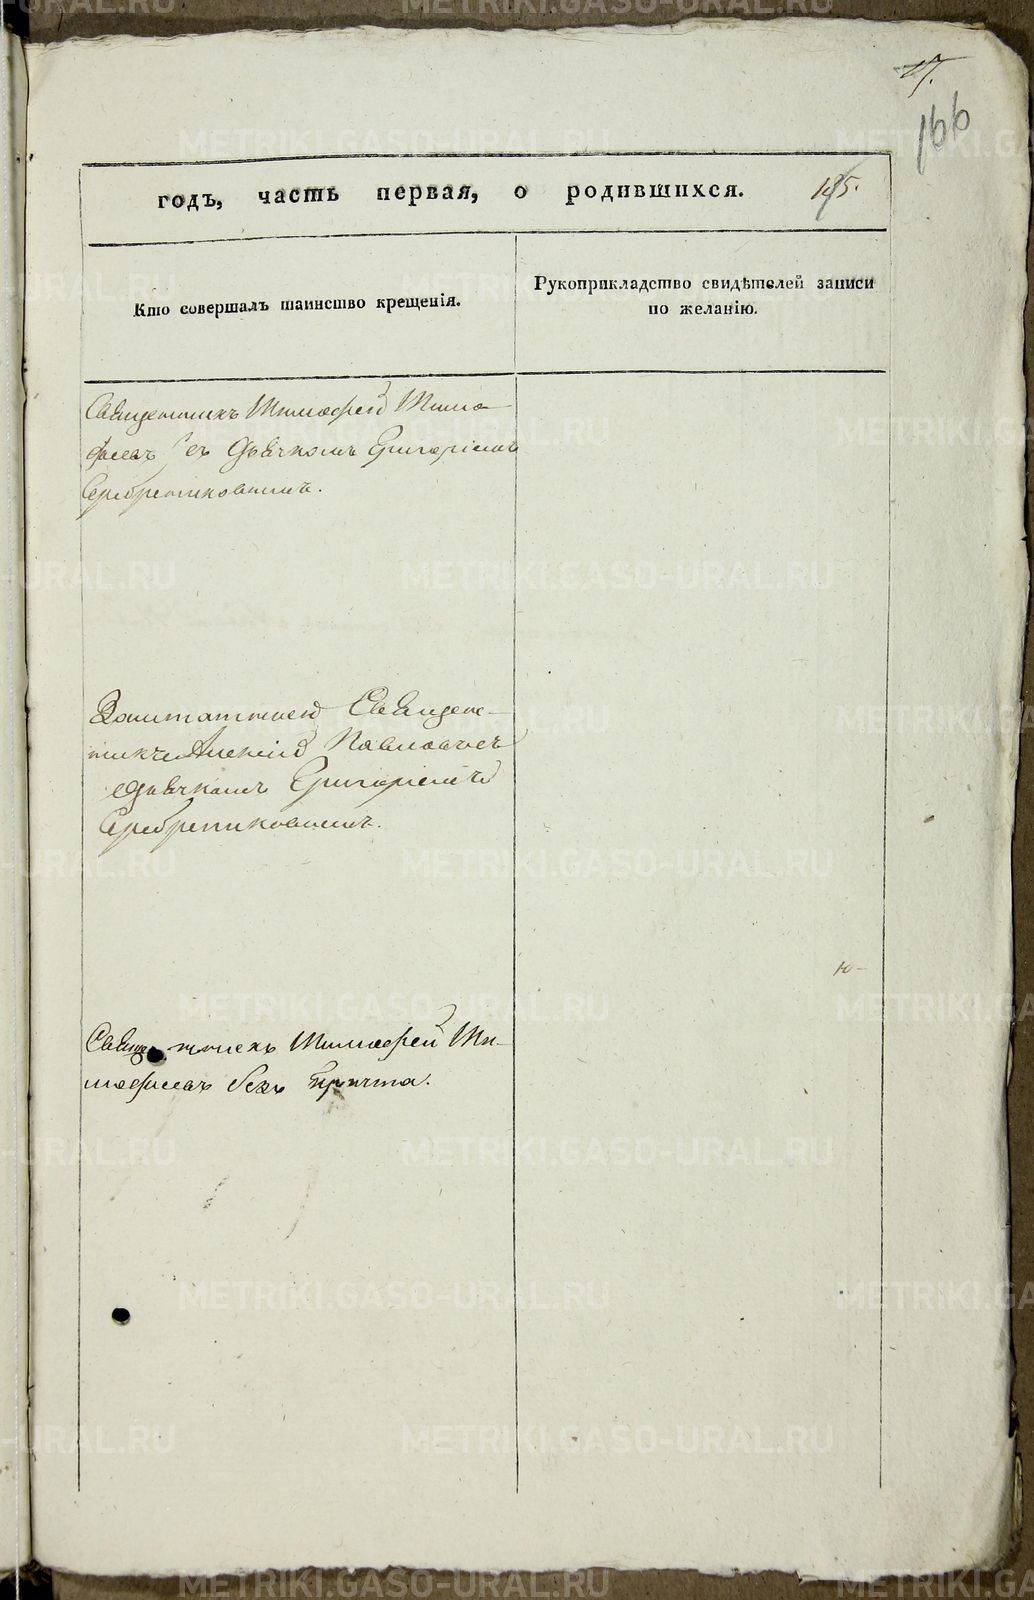 17.
166
годъ, часть первая, о родившихся. 185.
Кто совершалъ таинство крещенія.
Рукоприкладство свидѣтелей записи
по желанію.
Священникъ Тимофей Тимо-
феевъ съ Дьячкомъ Григоріемъ
Серебрениковымъ.
Заштатной Священ-
никъ Алексій Павловъ съ
Дьячкомъ Григоріемъ
Серебрениковымъ.
Священникъ Тимофей Ти-
мофеевъ безъ причта.
METRIKI.GASO-URAL.RU